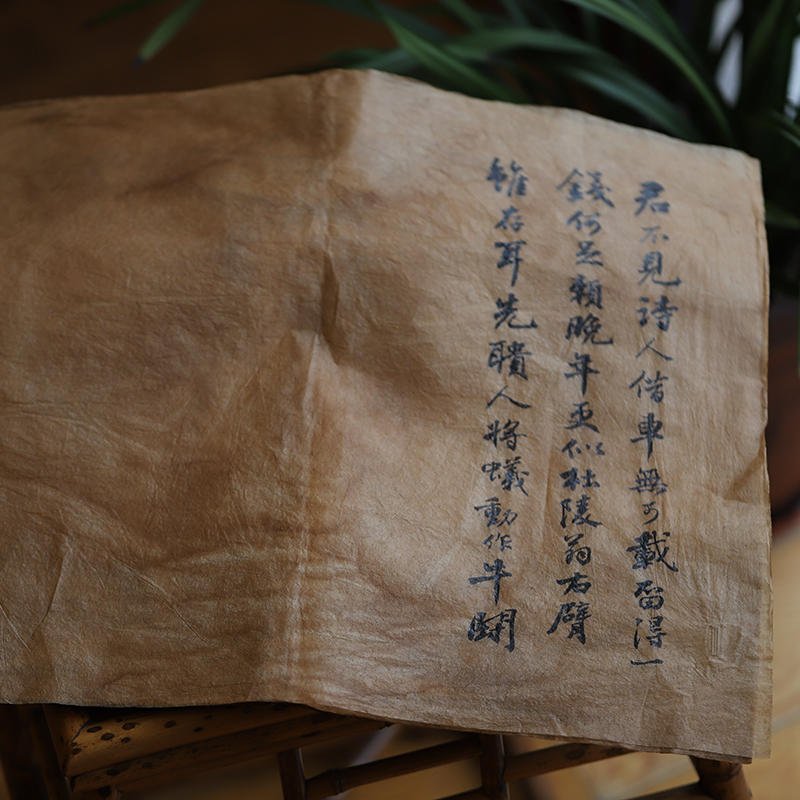 君不見詩人借車無可載留得一
錢何足賴晚年更似杜陵翁右臂
雖存耳先聵人將蟻動作牛鬭